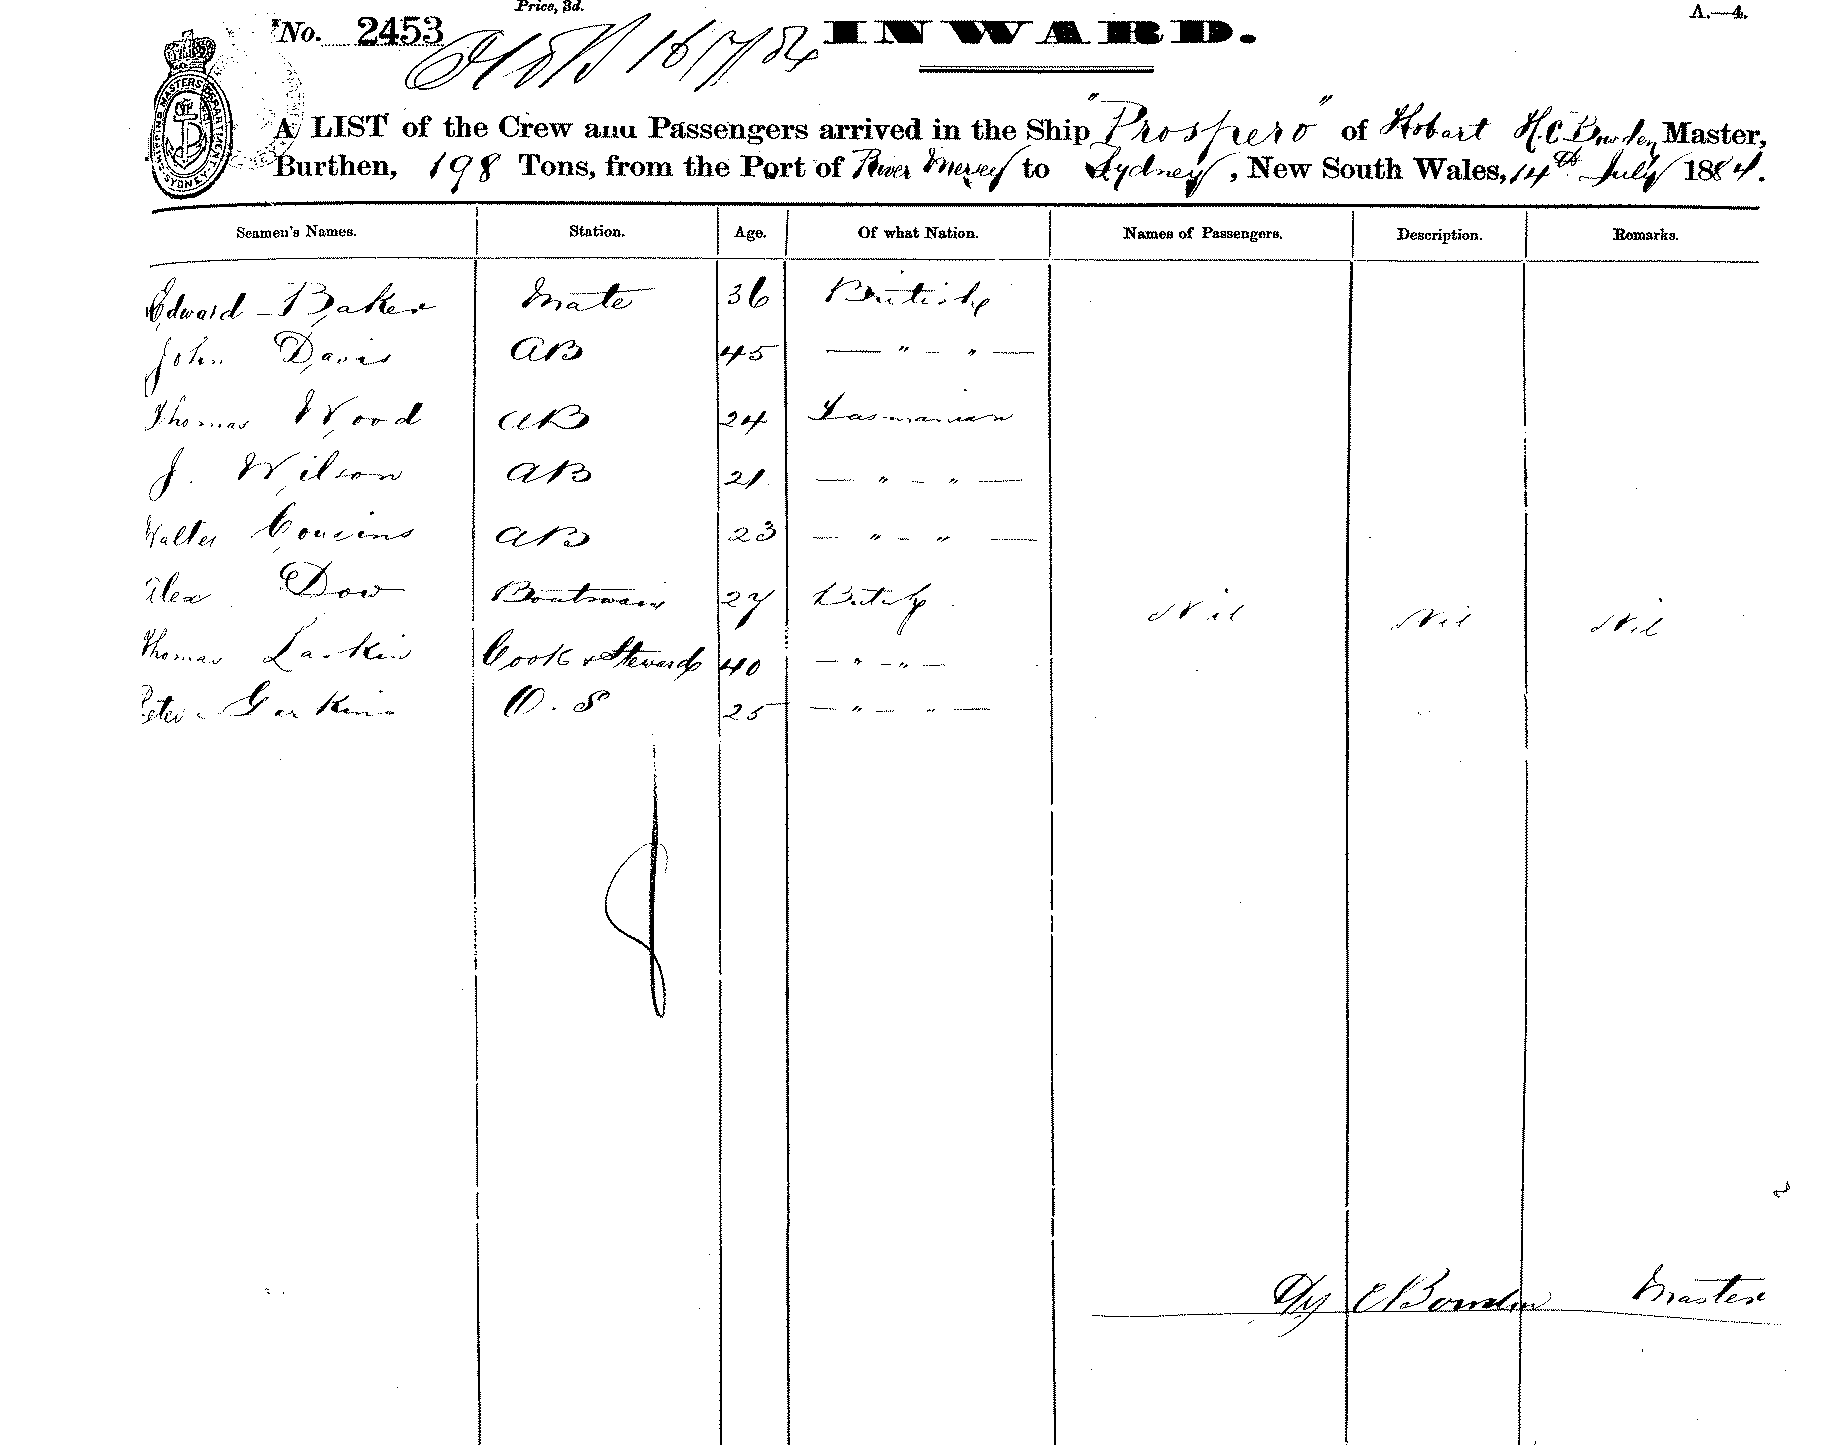 Price, 3d.
A.—4.
No. 2453 16/7/84 INWARD.
A LIST of the Crew and Passengers arrived in the Ship "Prospero" of Hobart H.C Bowden Master,
Burthen, 198 Tons, from the Port of River Mersey to Sydney, New South Wales, 14th July 1884.
SYDNEY
Seamen's Names. Station. Age. Of what Nation. Names of Passengers. Description. Remarks.
Edward Baker Mate 36 British
John Davis AB 45 — " – " —
Thomas Wood AB 24 Tasmanian
J. Wilson AB 21 — " – " —
Walter Cousins AB 23 — " – " —
Alex Dow Boatswain 27
Nil Nil Nil
Thomas Larkin Cook & Steward 40 — " – " —
Peter O.S 25 — " — " —
C Bowden Master